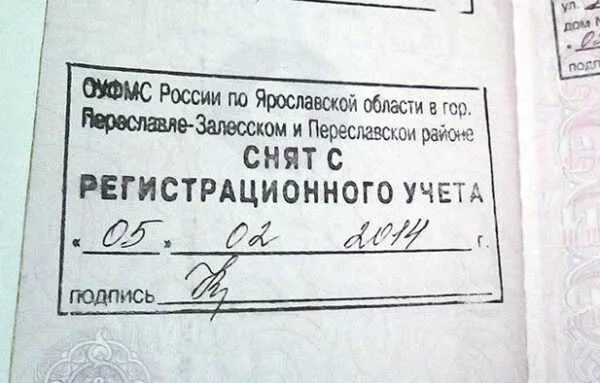 ОУФМС России по Ярославской области в гор.
Переславле-Залесском и Переславском районе
СНЯТ С
РЕГИСТРАЦИОННОГО УЧЕТА
« 05 » 02 2014 г.
подпись
ул.
дом №